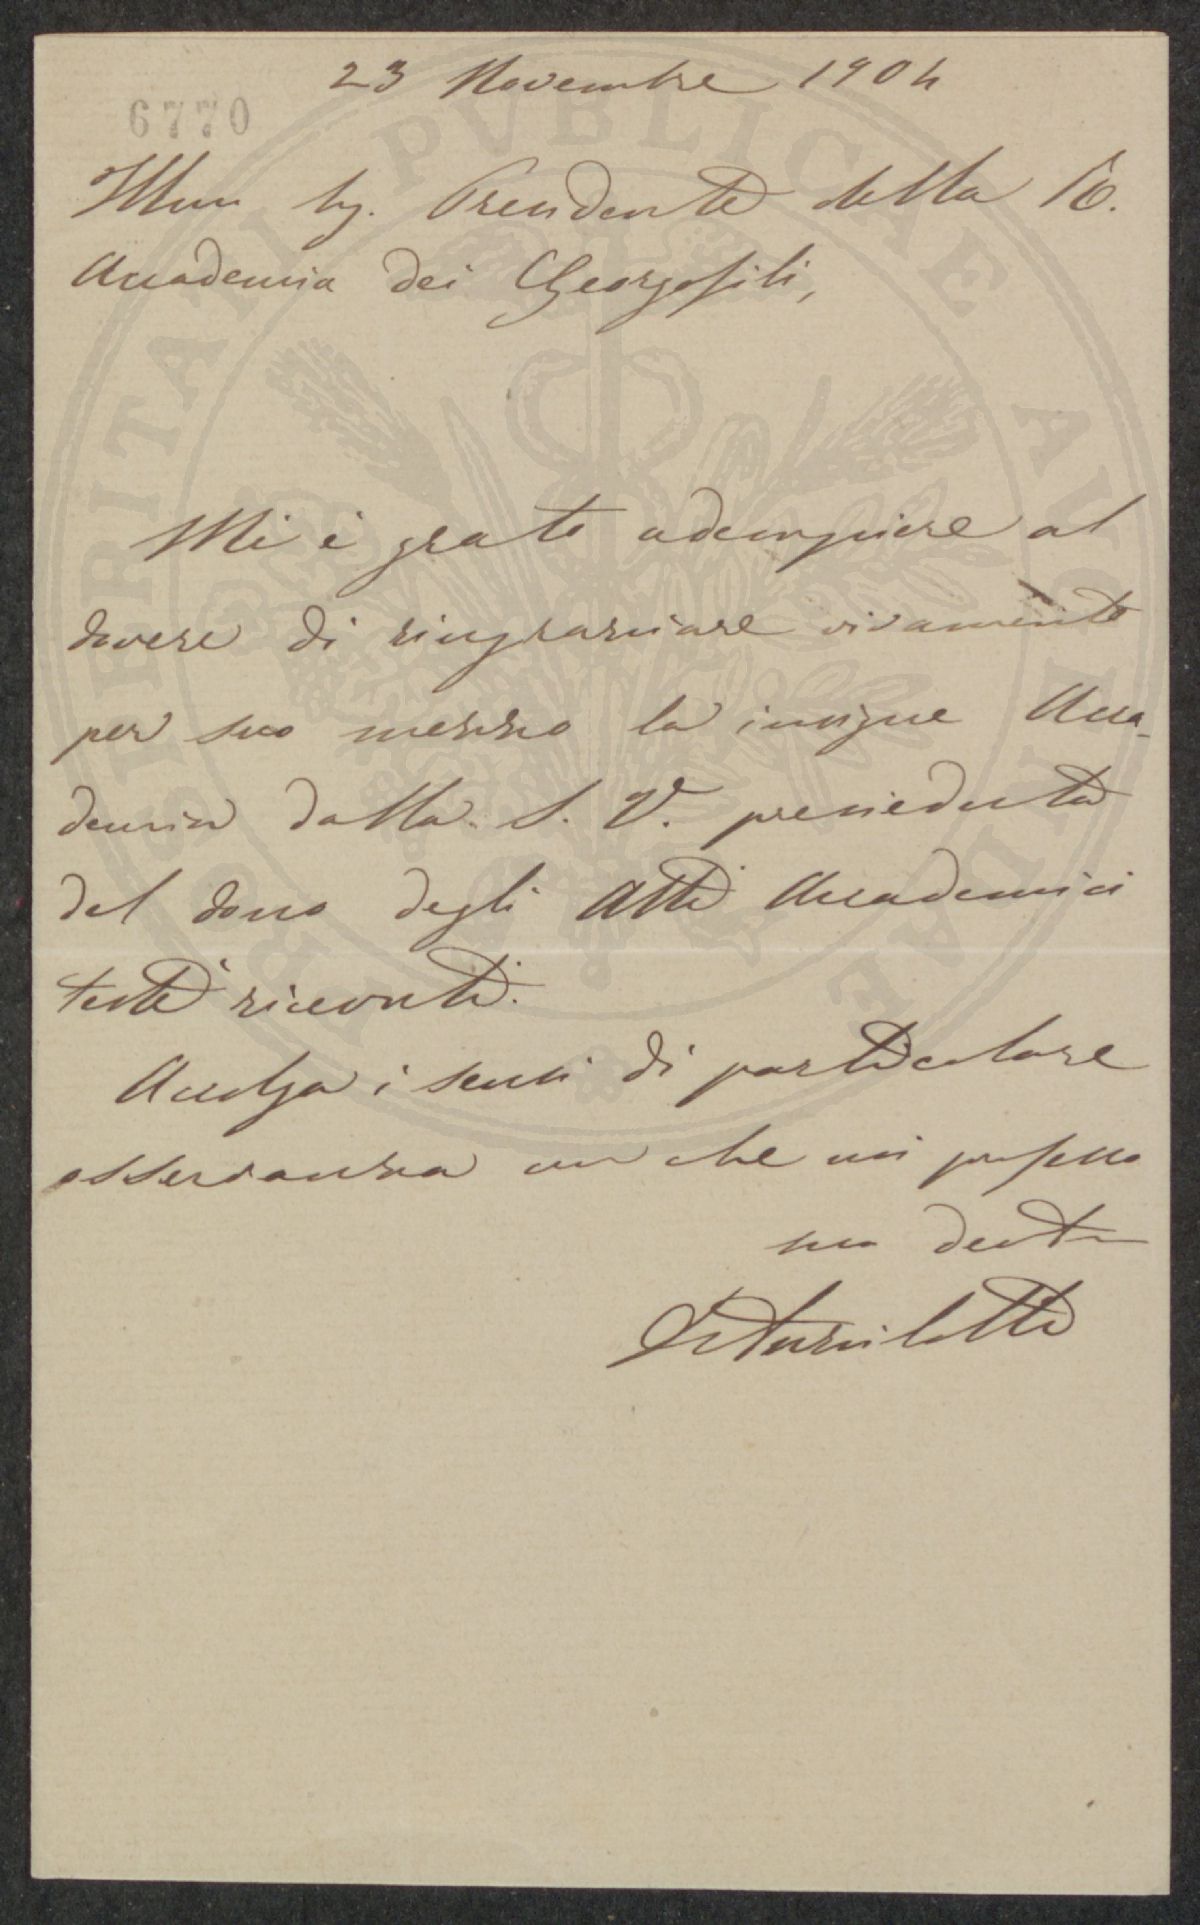 23 Novembre 1904
6770
Illmo Sig. Presidente della R.
Accademia dei Georgofili,
Mi è grato adempiere al
dovere di ringraziare vivamente
per suo mezzo la insigne Acca-
demia dalla S. V. presieduta
del dono degli Atti Accademici
testè ricevuti.
Accolga i sensi di particolare
osservanza con che mi professo
suo
PROSPERITATI PVBLICAE AVGENDAE